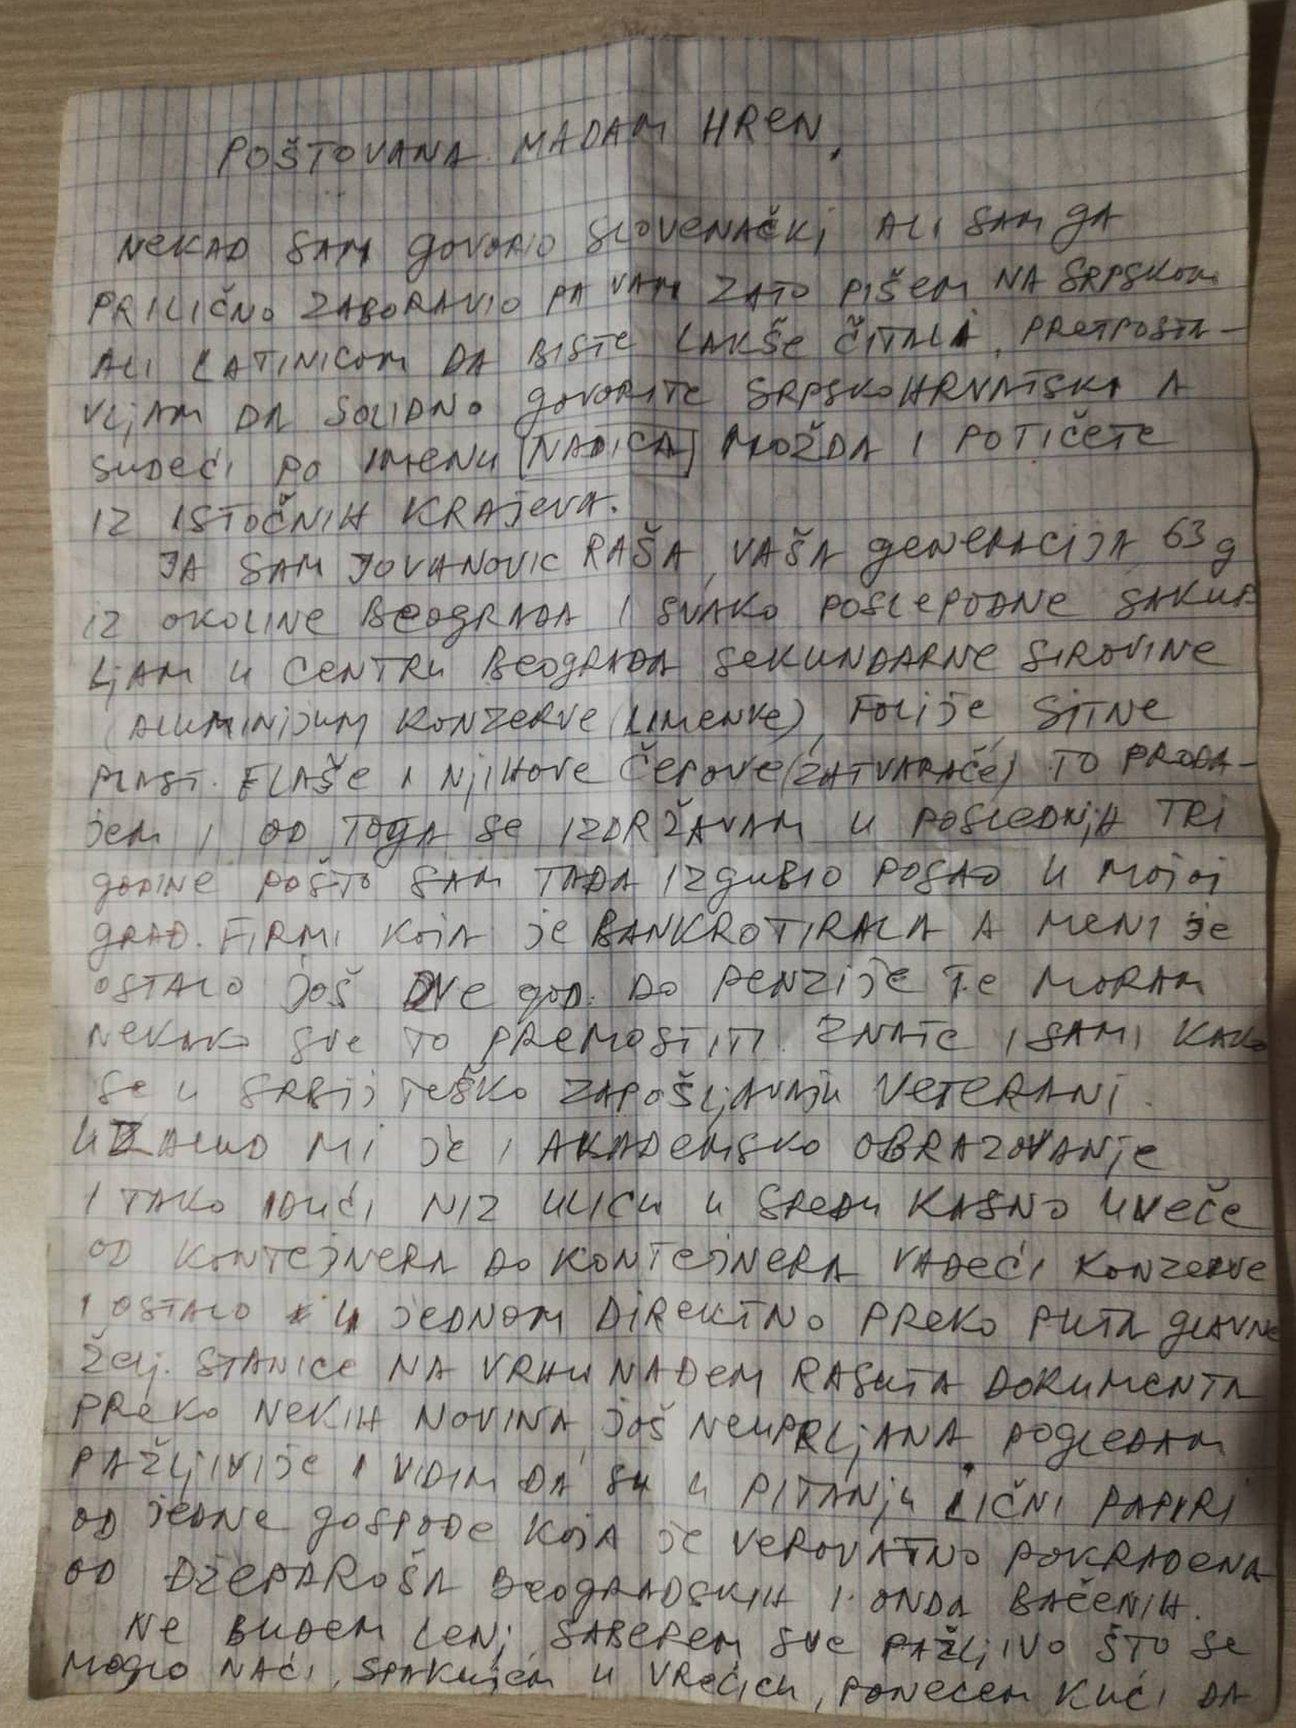 POŠTOVANA MADAM HREN,
NEKAD SAM GOVORIO SLOVENAČKI ALI SAM GA
PRILIČNO ZABORAVIO PA VAM ZATO PIŠEM NA SRPSKOM
ALI LATINICOM DA BISTE LAKŠE ČITALI, PRETPOSTA-
VLJAM DA SOLIDNO GOVORITE SRPSKOHRVATSKI A
SUDEĆI PO IMENU [NADICA] MOŽDA I POTIČETE
IZ ISTOČNIH KRAJEVA.
JA SAM JOVANOVIC RAŠA, VAŠA GENERACIJA, 63 g
IZ OKOLINE BEOGRADA I SVAKO POSLEPODNE SAKUP
LJAM U CENTRU BEOGRADA SEKUNDARNE SIROVINE
(ALUMINIJUM KONZERVE (LIMENKE), FOLIJE, SITNE
PLAST. FLAŠE I NJIHOVE ČEPOVE (ZATVARAČE) TO PRODA-
JEM I OD TOGA SE IZDRŽAVAM U POSLEDNJIH TRI
GODINE POŠTO SAM TADA IZGUBIO POSAO U MOJOJ
GRAĐ. FIRMI KOJA JE BANKROTIRALA A MENI JE
OSTALO JOŠ DVE GOD. DO PENZIJE TE MORAM
NEKAKO SVE TO PREMOSTITI. ZNATE I SAMI KAKO
SE U SRBIJI TEŠKO ZAPOŠLJAVAJU VETERANI.
UZALUD MI JE I AKADEMSKO OBRAZOVANJE
I TAKO IDUĆI NIZ ULICU U SREDU KASNO UVEČE
OD KONTEJNERA DO KONTEJNERA VADEĆI KONZERVE
I OSTALO U JEDNOM DIREKTNO PREKO PUTA GLAVNE
ŽELJ. STANICE NA VRHU NAĐEM RASUTA DOKUMENTA
PREKO NEKIH NOVINA, JOŠ NEUPRLJANA, POGLEDAM
PAŽLJIVIJE I VIDIM DA SU U PITANJU LIČNI PAPIRI
OD JEDNE GOSPOĐE KOJA JE VEROVATNO POKRADENA
OD DŽEPAROŠA BEOGRADSKIH I ONDA BAČENIH.
NE BUDEM LENJ, SABEREM SVE PAŽLJIVO ŠTO SE
MOGLO NAĆI, SPAKUJEM U VREĆICU, PONESEM KUĆI DA